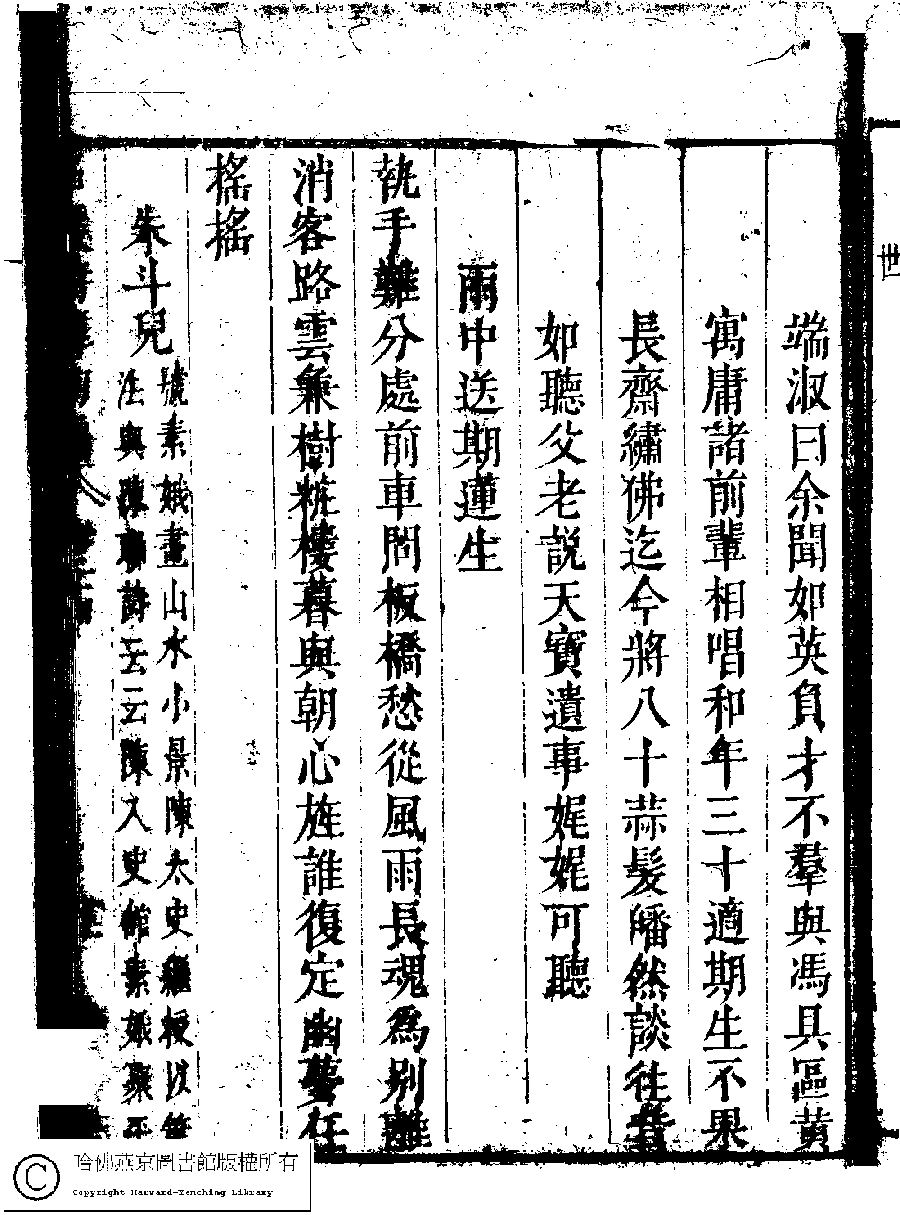 端淑曰余聞如英負才不羣與馮具區黃
寓庸諸前輩相唱和年三十適期生不果
長齋繡佛迄今將八十蒜髮皤然談往昔
如聽父老說天寶遺事娓娓可聽
雨中送期蓮生
執手難分處前車問板橋愁從風雨長魂為別離
消客路雲兼樹粧樓暮與朝心旌誰復定幽夢任
搖搖
朱斗兒
號素娥畫山水小景陳太史 授以筆
法與陳聯詩云云陳入史館素娥聚平
世
哈佛燕京圖書館版權所有
Copyright Harvard-Yenching Library